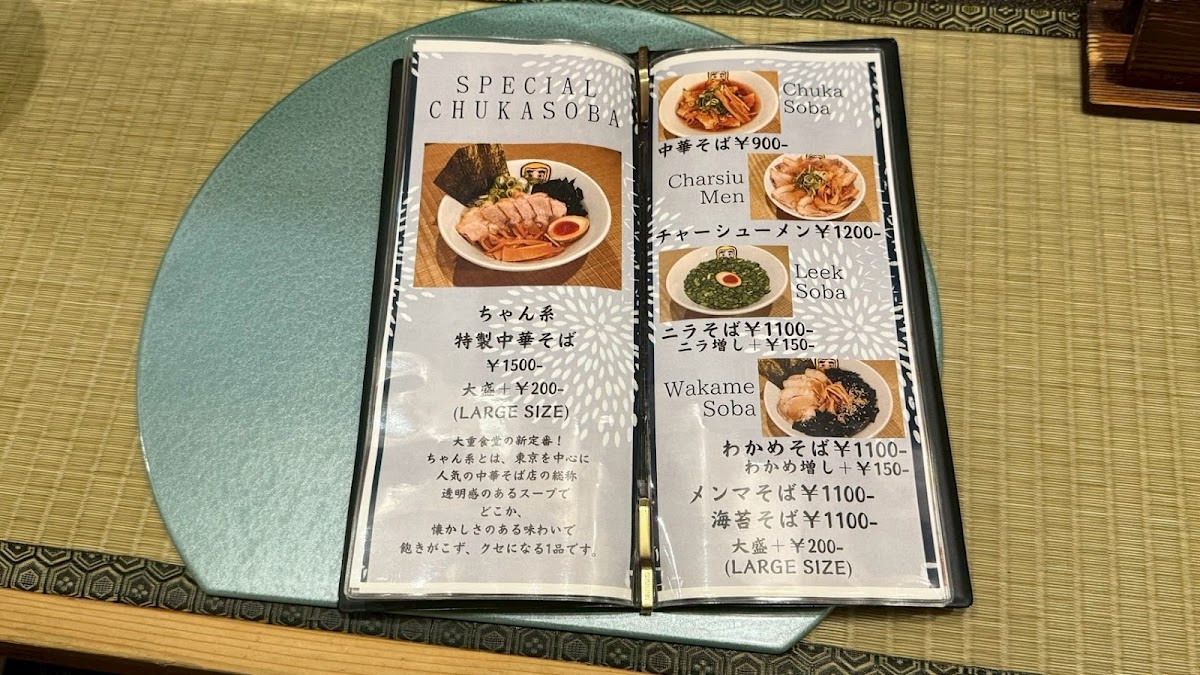 SPECIAL
CHUKASOBA
ちゃん系
特製中華そば
￥1500-
大盛＋￥200-
(LARGE SIZE)
大重食堂の新定番！
ちゃん系とは、東京を中心に
人気の中華そば店の総称
透明感のあるスープで
どこか、
懐かしさのある味わいで
飽きがこず、クセになる1品です。
Chuka
Soba
中華そば￥900-
Charsiu
Men
チャーシューメン￥1200-
Leek
Soba
ニラそば￥1100-
ニラ増し＋￥150-
Wakame
Soba
わかめそば￥1100-
わかめ増し＋￥150-
メンマそば￥1100-
海苔そば￥1100-
大盛＋￥200-
(LARGE SIZE)